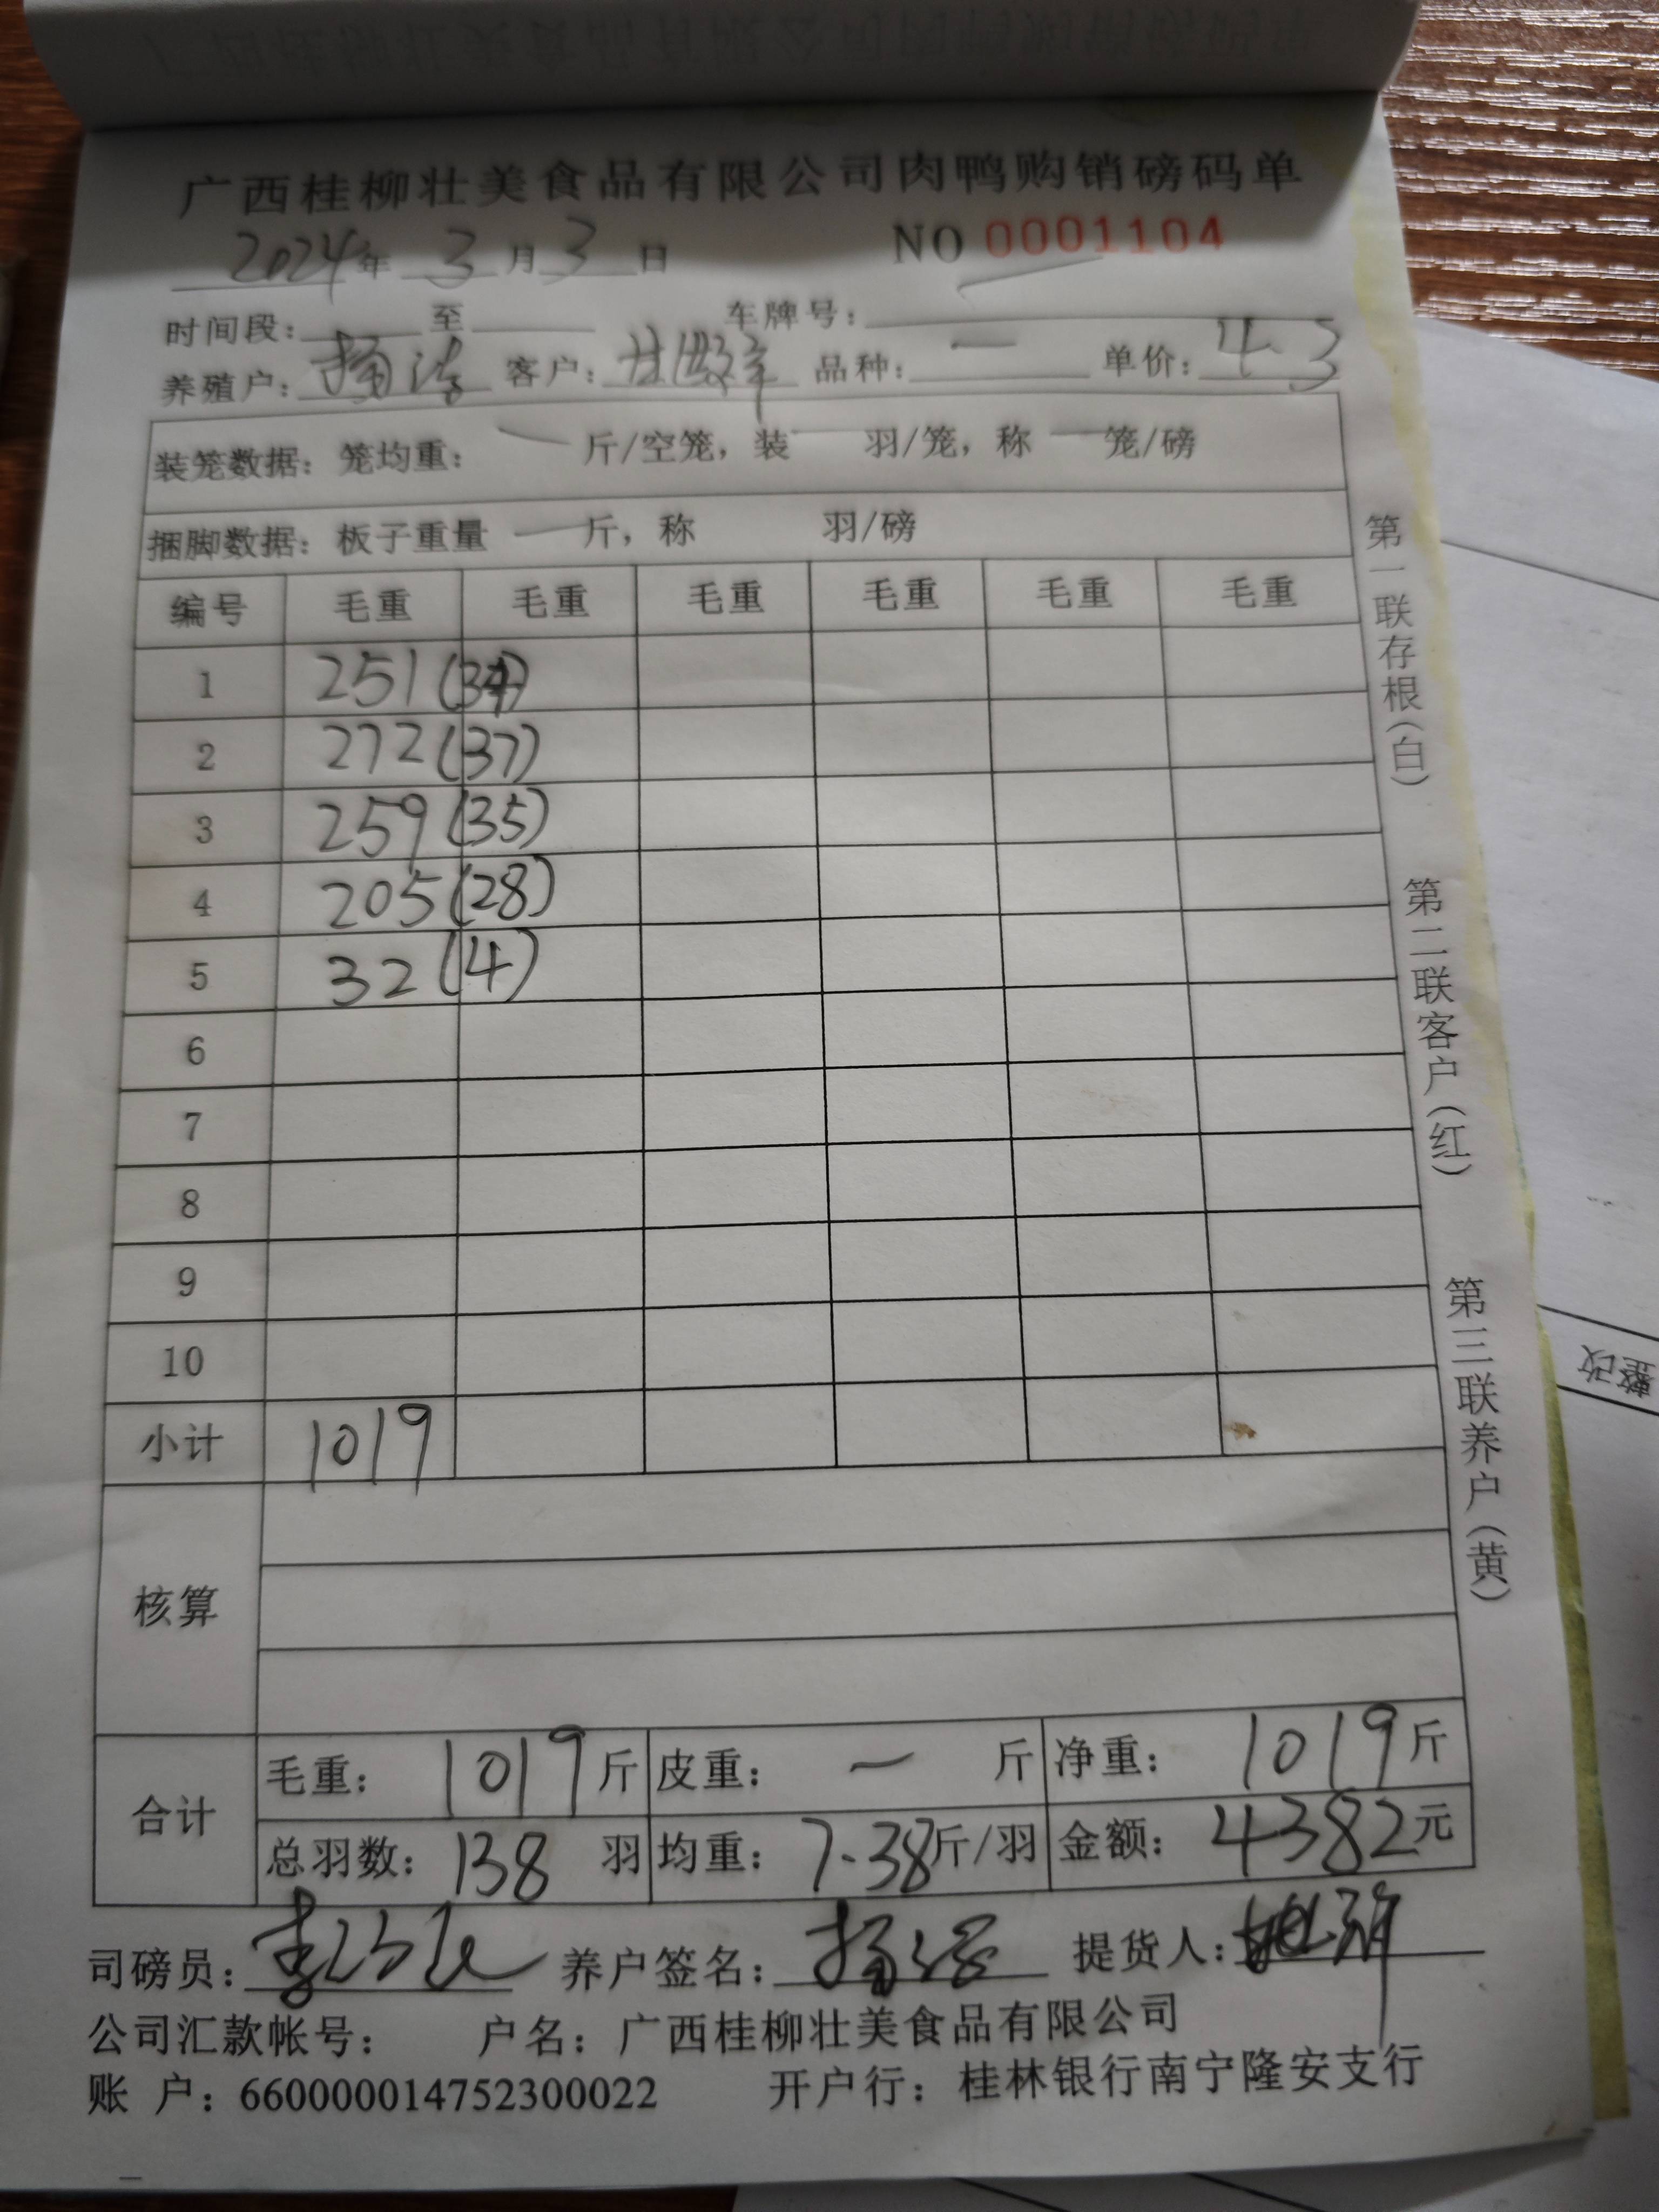 广西桂柳壮美食品有限公司肉鸭购销磅码单
2024年 3月3日 NO 0001104
时间段: 至 车牌号:
养殖户: 客户: 品种: 一 单价: 4.3
装笼数据: 笼均重: 一 斤/空笼, 装 一 羽/笼, 称 一 笼/磅
捆脚数据: 板子重量 一 斤, 称 羽/磅
编号 毛重 毛重 毛重 毛重 毛重 毛重
1 251 (34)
2 272 (37)
3 259 (35)
4 205 (28)
5 32 (4)
6
7
8
9
10
小计 1019
核算
合计
毛重: 1019斤 皮重: 一 斤 净重: 1019斤
总羽数: 138 羽 均重: 7.38斤/羽 金额: 4382元
司磅员: 养户签名: 提货人:
公司汇款帐号: 户名: 广西桂柳壮美食品有限公司
账 户: 660000014752300022 开户行: 桂林银行南宁隆安支行
第一联存根(白)
第二联客户(红)
第三联养户(黄)
整改